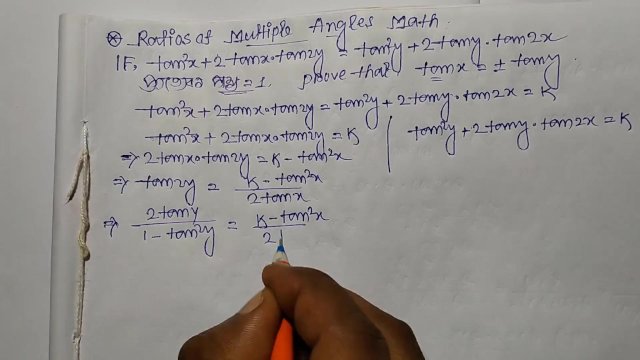 ⊗ Ratios of Multiple Angles Math.
IF, tan²x + 2tanx·tan2y = tan²y + 2tany·tan2x
প্রত্যেকের প্রশ্ন = 1. prove that tanx = ± tany.
tan²x + 2tanx·tan2y = tan²y + 2tany·tan2x = K
tan²x + 2tanx·tan2y = K | tan²y + 2tany·tan2x = K
⇒ 2tanx·tan2y = K - tan²x
⇒ tan2y = (K - tan²x)/(2tanx)
⇒ (2tany)/(1 - tan²y) = (K - tan²x)/(2